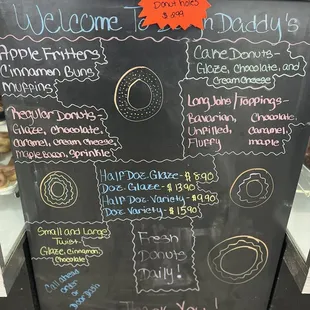 Donut holes
$3.99
Welcome To Daddy's
Apple Fritters
Cinnamon Buns
Muffins
Cake Donuts-
Glaze, Chocolate, and
Cream Cheese
Regular Donuts-
Glaze, Chocolate,
Caramel, Cream Cheese,
Maple Bacon, Sprinkle
Long Johns/Toppings-
Bavarian, Chocolate,
Unfilled, Caramel,
Fluffy maple
Half Doz. Glaze-$8.90
Doz. Glaze-$13.90
Half Doz. Variety-$9.90
Doz Variety-$15.90
Small and Large
Twist-
Glaze, Cinnamon,
Chocolate
Fresh
Donuts
Daily!
Call ahead
order or
Thank You!